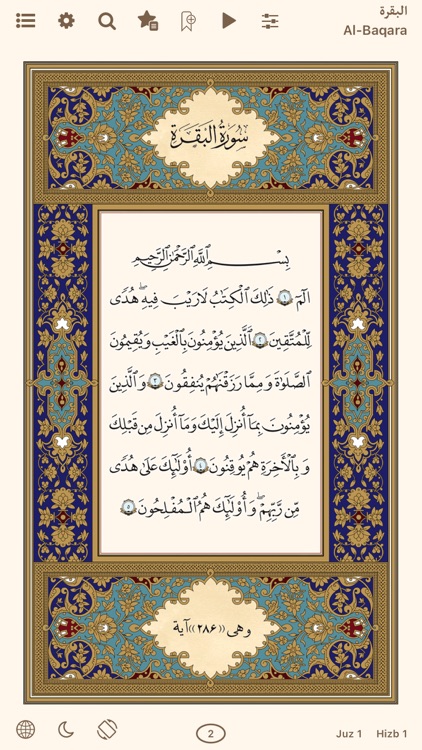 البقرة
Al-Baqara
سُورَةُ الْبَقَرَةِ
بِسْمِ اللَّهِ الرَّحْمَٰنِ الرَّحِيمِ
الٓمٓ ۝١ ذَٰلِكَ الْكِتَٰبُ لَا رَيْبَ فِيهِ ۛ هُدًى
لِّلْمُتَّقِينَ ۝٢ الَّذِينَ يُؤْمِنُونَ بِالْغَيْبِ وَيُقِيمُونَ
الصَّلَوٰةَ وَمِمَّا رَزَقْنَٰهُمْ يُنفِقُونَ ۝٣ وَالَّذِينَ
يُؤْمِنُونَ بِمَآ أُنزِلَ إِلَيْكَ وَمَآ أُنزِلَ مِن قَبْلِكَ
وَبِالْأَخِرَةِ هُمْ يُوقِنُونَ ۝٤ أُوْلَٰٓئِكَ عَلَىٰ هُدًى
مِّن رَّبِّهِمْ ۖ وَأُوْلَٰٓئِكَ هُمُ الْمُفْلِحُونَ ۝٥
وهى ((٢٨۶)) آية
2
Juz 1 Hizb 1